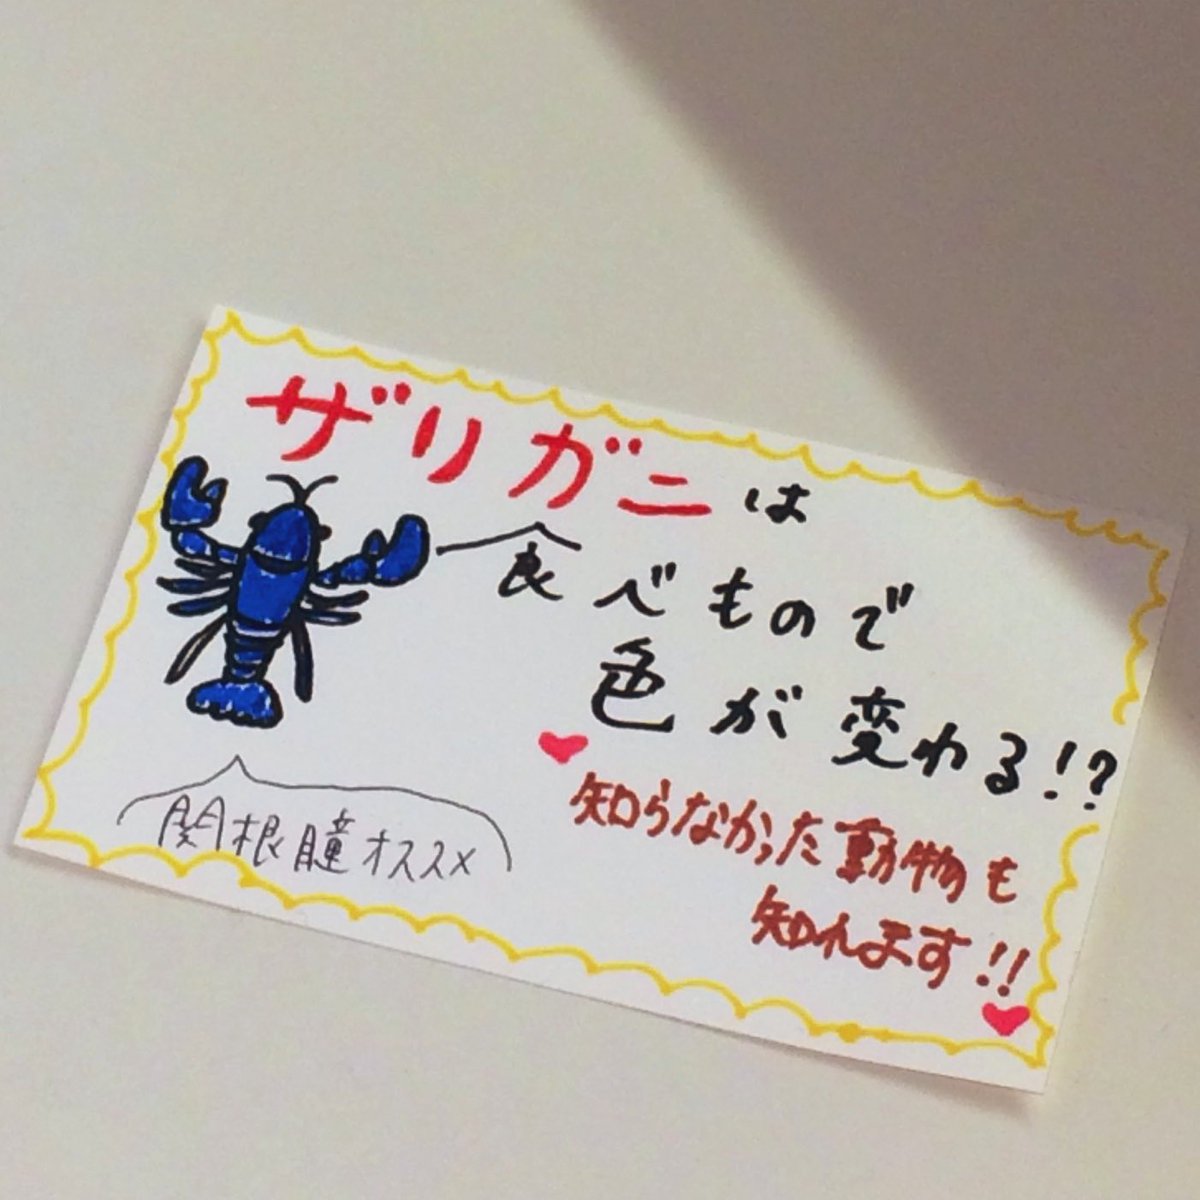 ザリガニは
食べもので
色が変わる!?
知らなかった動物も
知れます!!
関根瞳オススメ